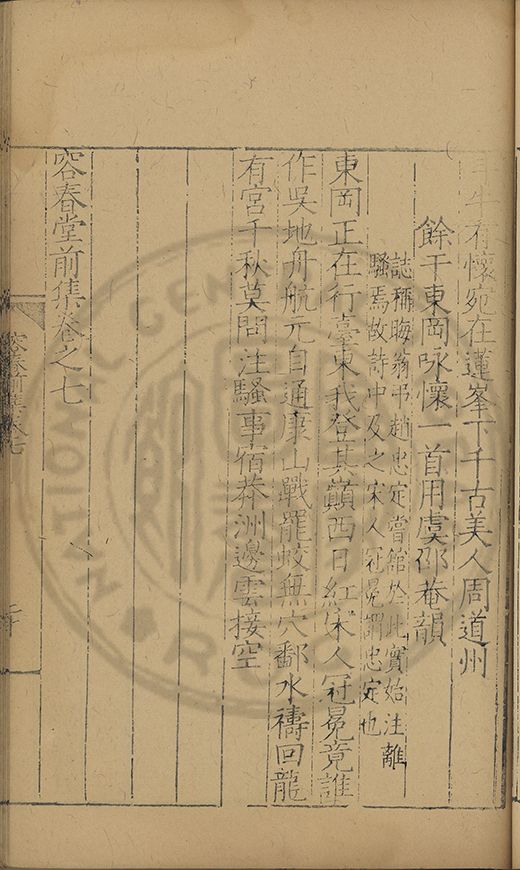 有懷宛在蓮峯下千古美人周道州
餘干東岡咏懷一首用虞邵菴韻
誌稱晦翁弔趙忠定嘗舘於此實始注離
騷焉故詩中及之宋人冠冕謂忠定也
東岡正在行臺東我登其巔西日紅宋人冠冕竟誰
作吳地舟航元自通康山戰罷蛟無穴鄱水禱回龍
有宮千秋莫問注騷事宿莽洲邊雲接空
容春堂前集卷之七
容春前集卷七